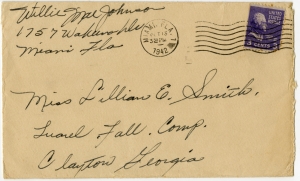 Willie Mae Johnson
1757 Walkers Ave
Miami Fla
MIAMI, FLA.
1942
UNITED STATES
3 CENTS 3
Miss Lillian E. Smith.
Laurel Fall. Comp.
Clayton Georgia